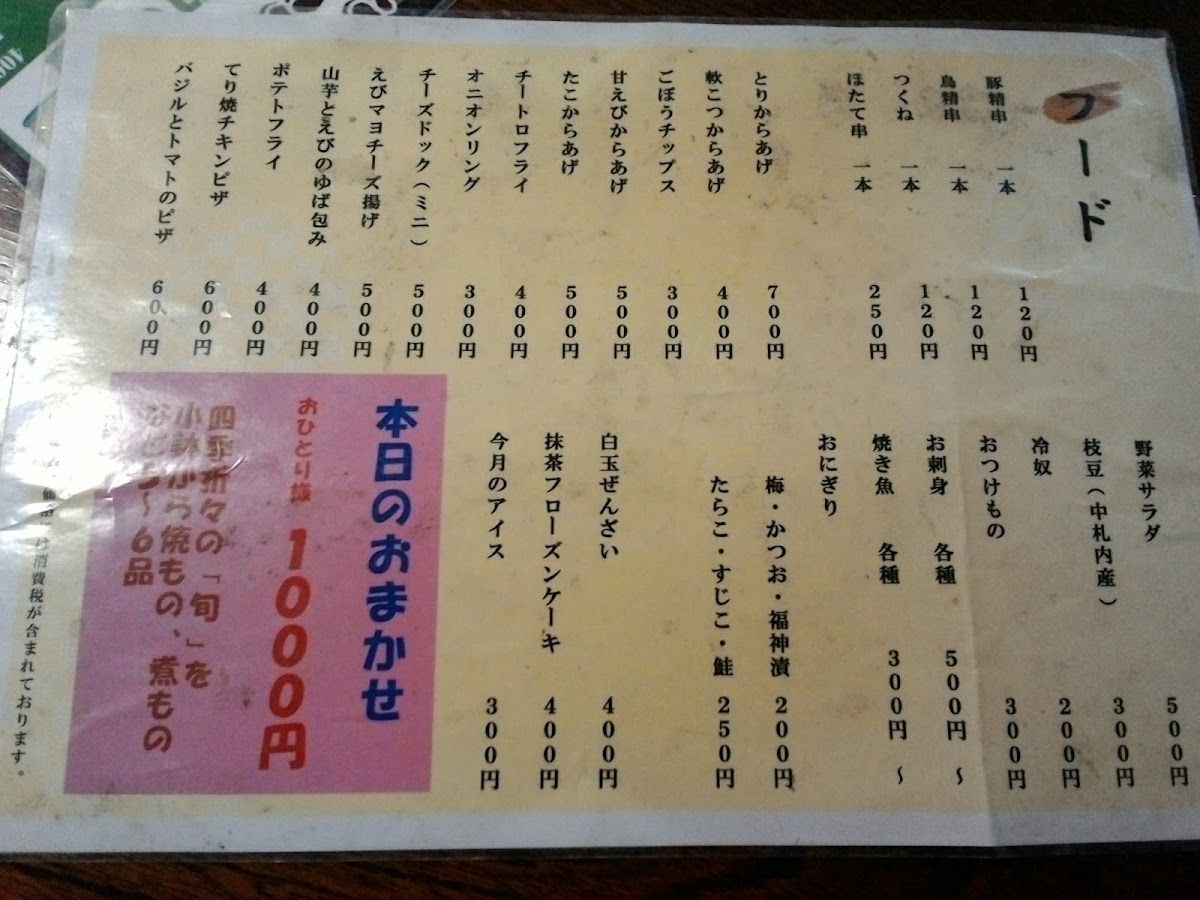 フード
豚精串 一本 120円
鳥精串 一本 120円
つくね 一本 120円
ほたて串 一本 250円
とりからあげ 700円
軟こつからあげ 400円
ごぼうチップス 300円
甘えびからあげ 500円
たこからあげ 500円
チートロフライ 400円
オニオンリング 300円
チーズドック(ミニ) 500円
えびマヨチーズ揚げ 500円
山芋とえびのゆば包み 400円
ポテトフライ 400円
てり焼チキンピザ 600円
バジルとトマトのピザ 600円
野菜サラダ 500円
枝豆(中札内産) 300円
冷奴 200円
おつけもの 300円
お刺身 各種 500円~
焼き魚 各種 300円~
おにぎり
梅・かつお・福神漬 200円
たらこ・すじこ・鮭 250円
白玉ぜんざい 400円
抹茶フローズンケーキ 400円
今月のアイス 300円
本日のおまかせ
おひとり様 1000円
四季折々の「旬」を
小鉢から焼もの、煮もの
など5~6品
消費税が含まれております。